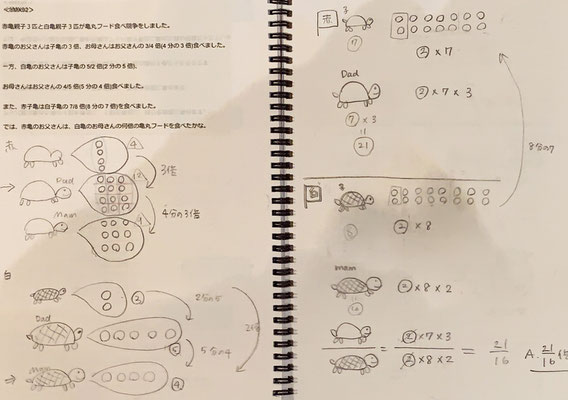 赤亀親子3匹と白亀親子3匹が亀丸フード食べ競争をしました。
赤亀のお父さんは子亀の3倍、お母さんはお父さんの 3/4 倍(4 分の 3 倍)食べました。
一方、白亀のお父さんは子亀の 5/2 倍(2分の 5 倍)、
お母さんはお父さんの 4/5 倍(5分の 4 倍)食べました。
また、赤子亀は白子亀の 7/8 倍(8分の 7 倍)を食べました。
では、赤亀のお父さんは、白亀のお母さんの何倍の亀丸フードを食べたかな。
赤
④
3倍
Dad
⑫
4分の3倍
Mam
⑨
白
②
2分の5
Dad
⑤
2倍
5分の4
Mam
④
赤
子
⑦
② × 7
Dad
② × 7 × 3
⑦ × 3
㉑
8分の7
白
子
⑧
② × 8
mam
⑯
② × 8 × 2
= ② × 7 × 3 / ② × 8 × 2 = 21/16
A. 21/16 倍